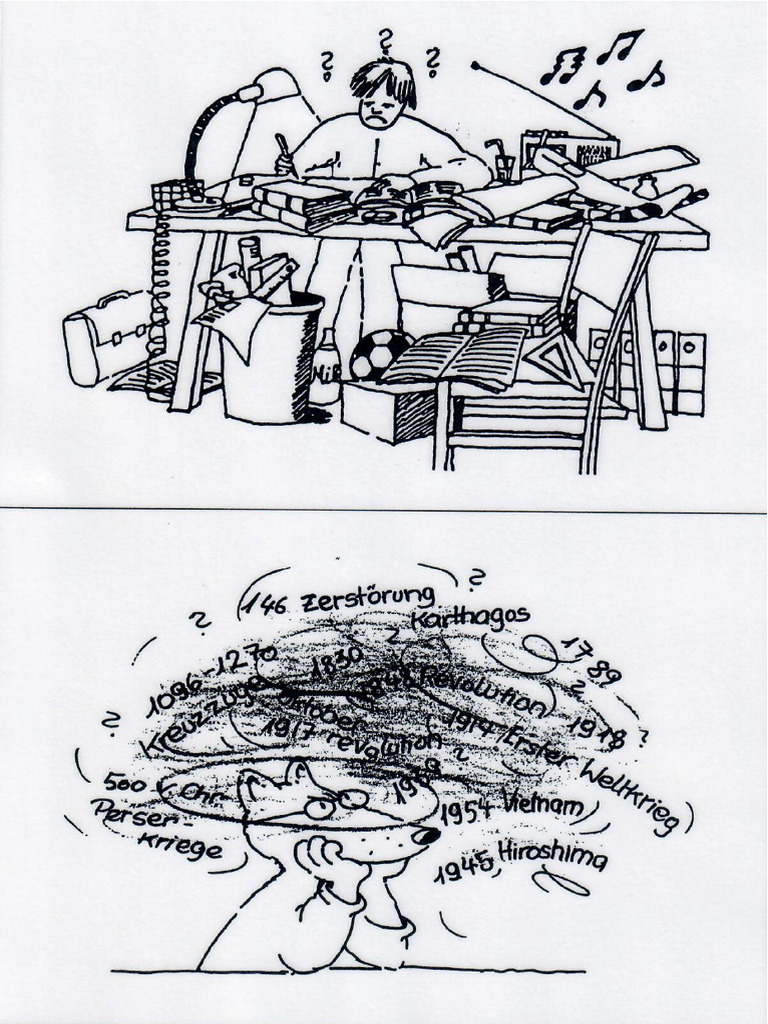 ?
?
?
Mil
146 Zerstörung
Karthagos
?
?
?
1789
1096-1270
Kreuzzüge
1830
1848 Revolution
?
1918
?
Oktober
1917 revolution
?
1914 Erster Weltkrieg
?
1939
500 v. Chr.
Perser-
kriege
1954 Vietnam
1945, Hiroshima